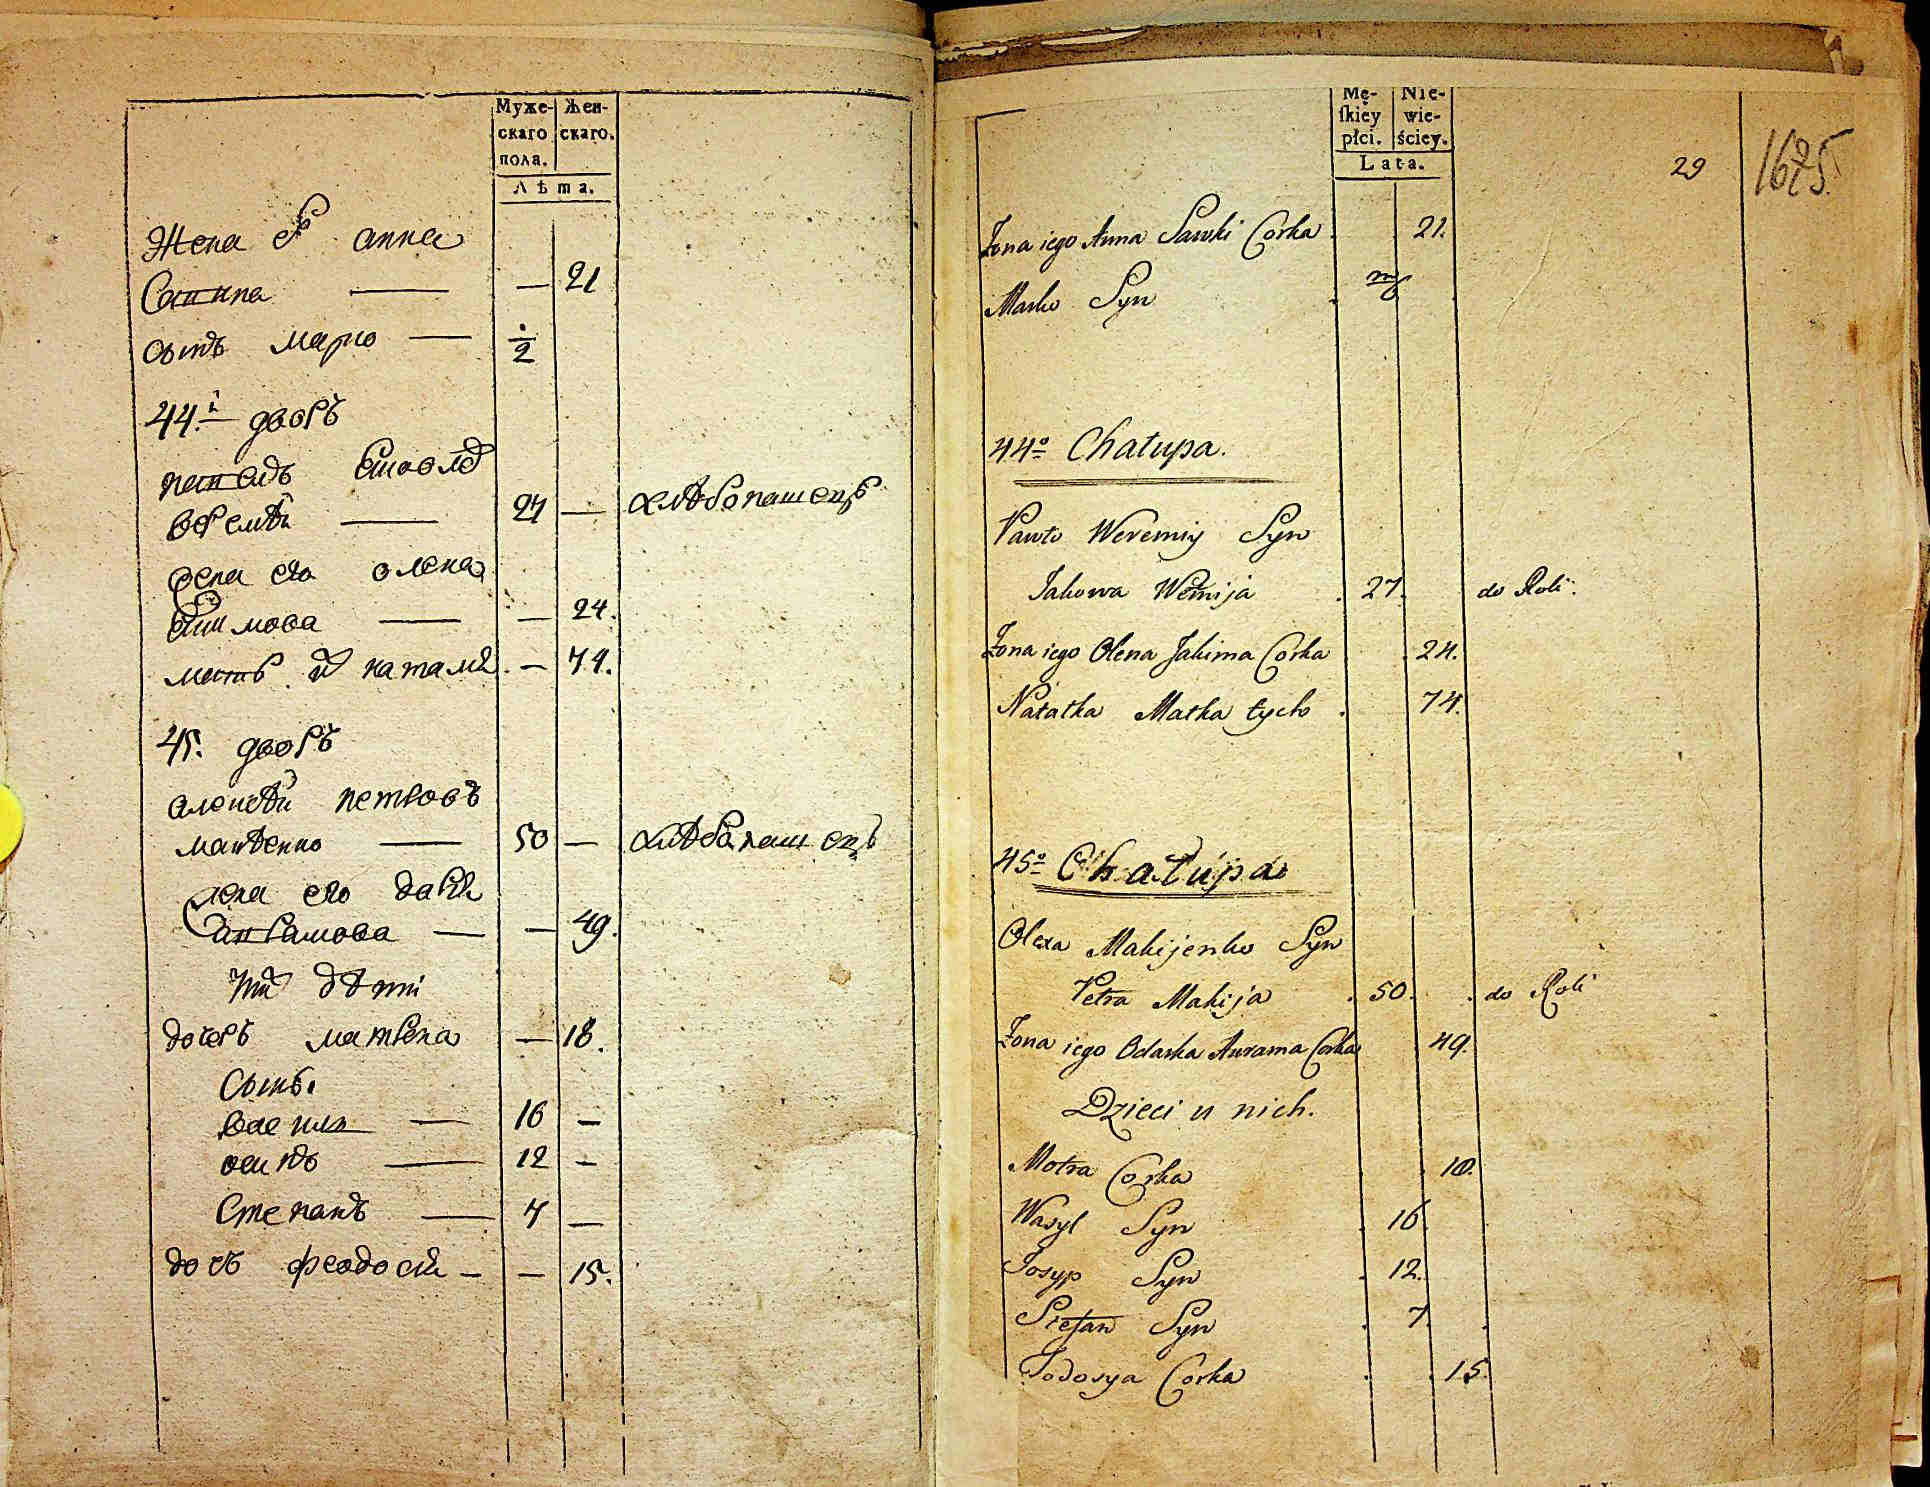 Муже-
скаго
пола.
Жен-
скаго.
Лѣта.
Жена анна
— 21
сынъ марко —
2
44.й дворъ
Еремѣй — 27 — хлѣбопашецъ
жена его олена
— 24.
мать наталія — 74.
45. дворъ
алексѣй петровъ
макѣенко — 50 — хлѣбопашецъ
жена его дарія
аврамова — — 49.
дѣти
дочерь матрена — 18.
сынъ.
василь — 16 —
осипъ — 12 —
Степанъ — 7 —
дочь феодосия — — 15.
Mę-
skiey
płci.
Nie-
wie-
ściey.
Lata.
29
1625.
Żona iego Anna Sawki Corka 21.
Marko Syn
44º Chałupa.
Pawło Weremiy Syn
Jakowa 27. do Roli.
Żona iego Olena Jakima Corka 24.
Natałka Matka tycho 74.
45º Chałupa
Olexa Makijenko Syn
Petra Makija 50. do Roli
Żona iego Odarka Awrama Corka 49.
Dzieci u nich.
Motra Corka 18.
Wasyl Syn 16
Josyp Syn 12.
Stefan Syn 7
Fodosya Corka 15.